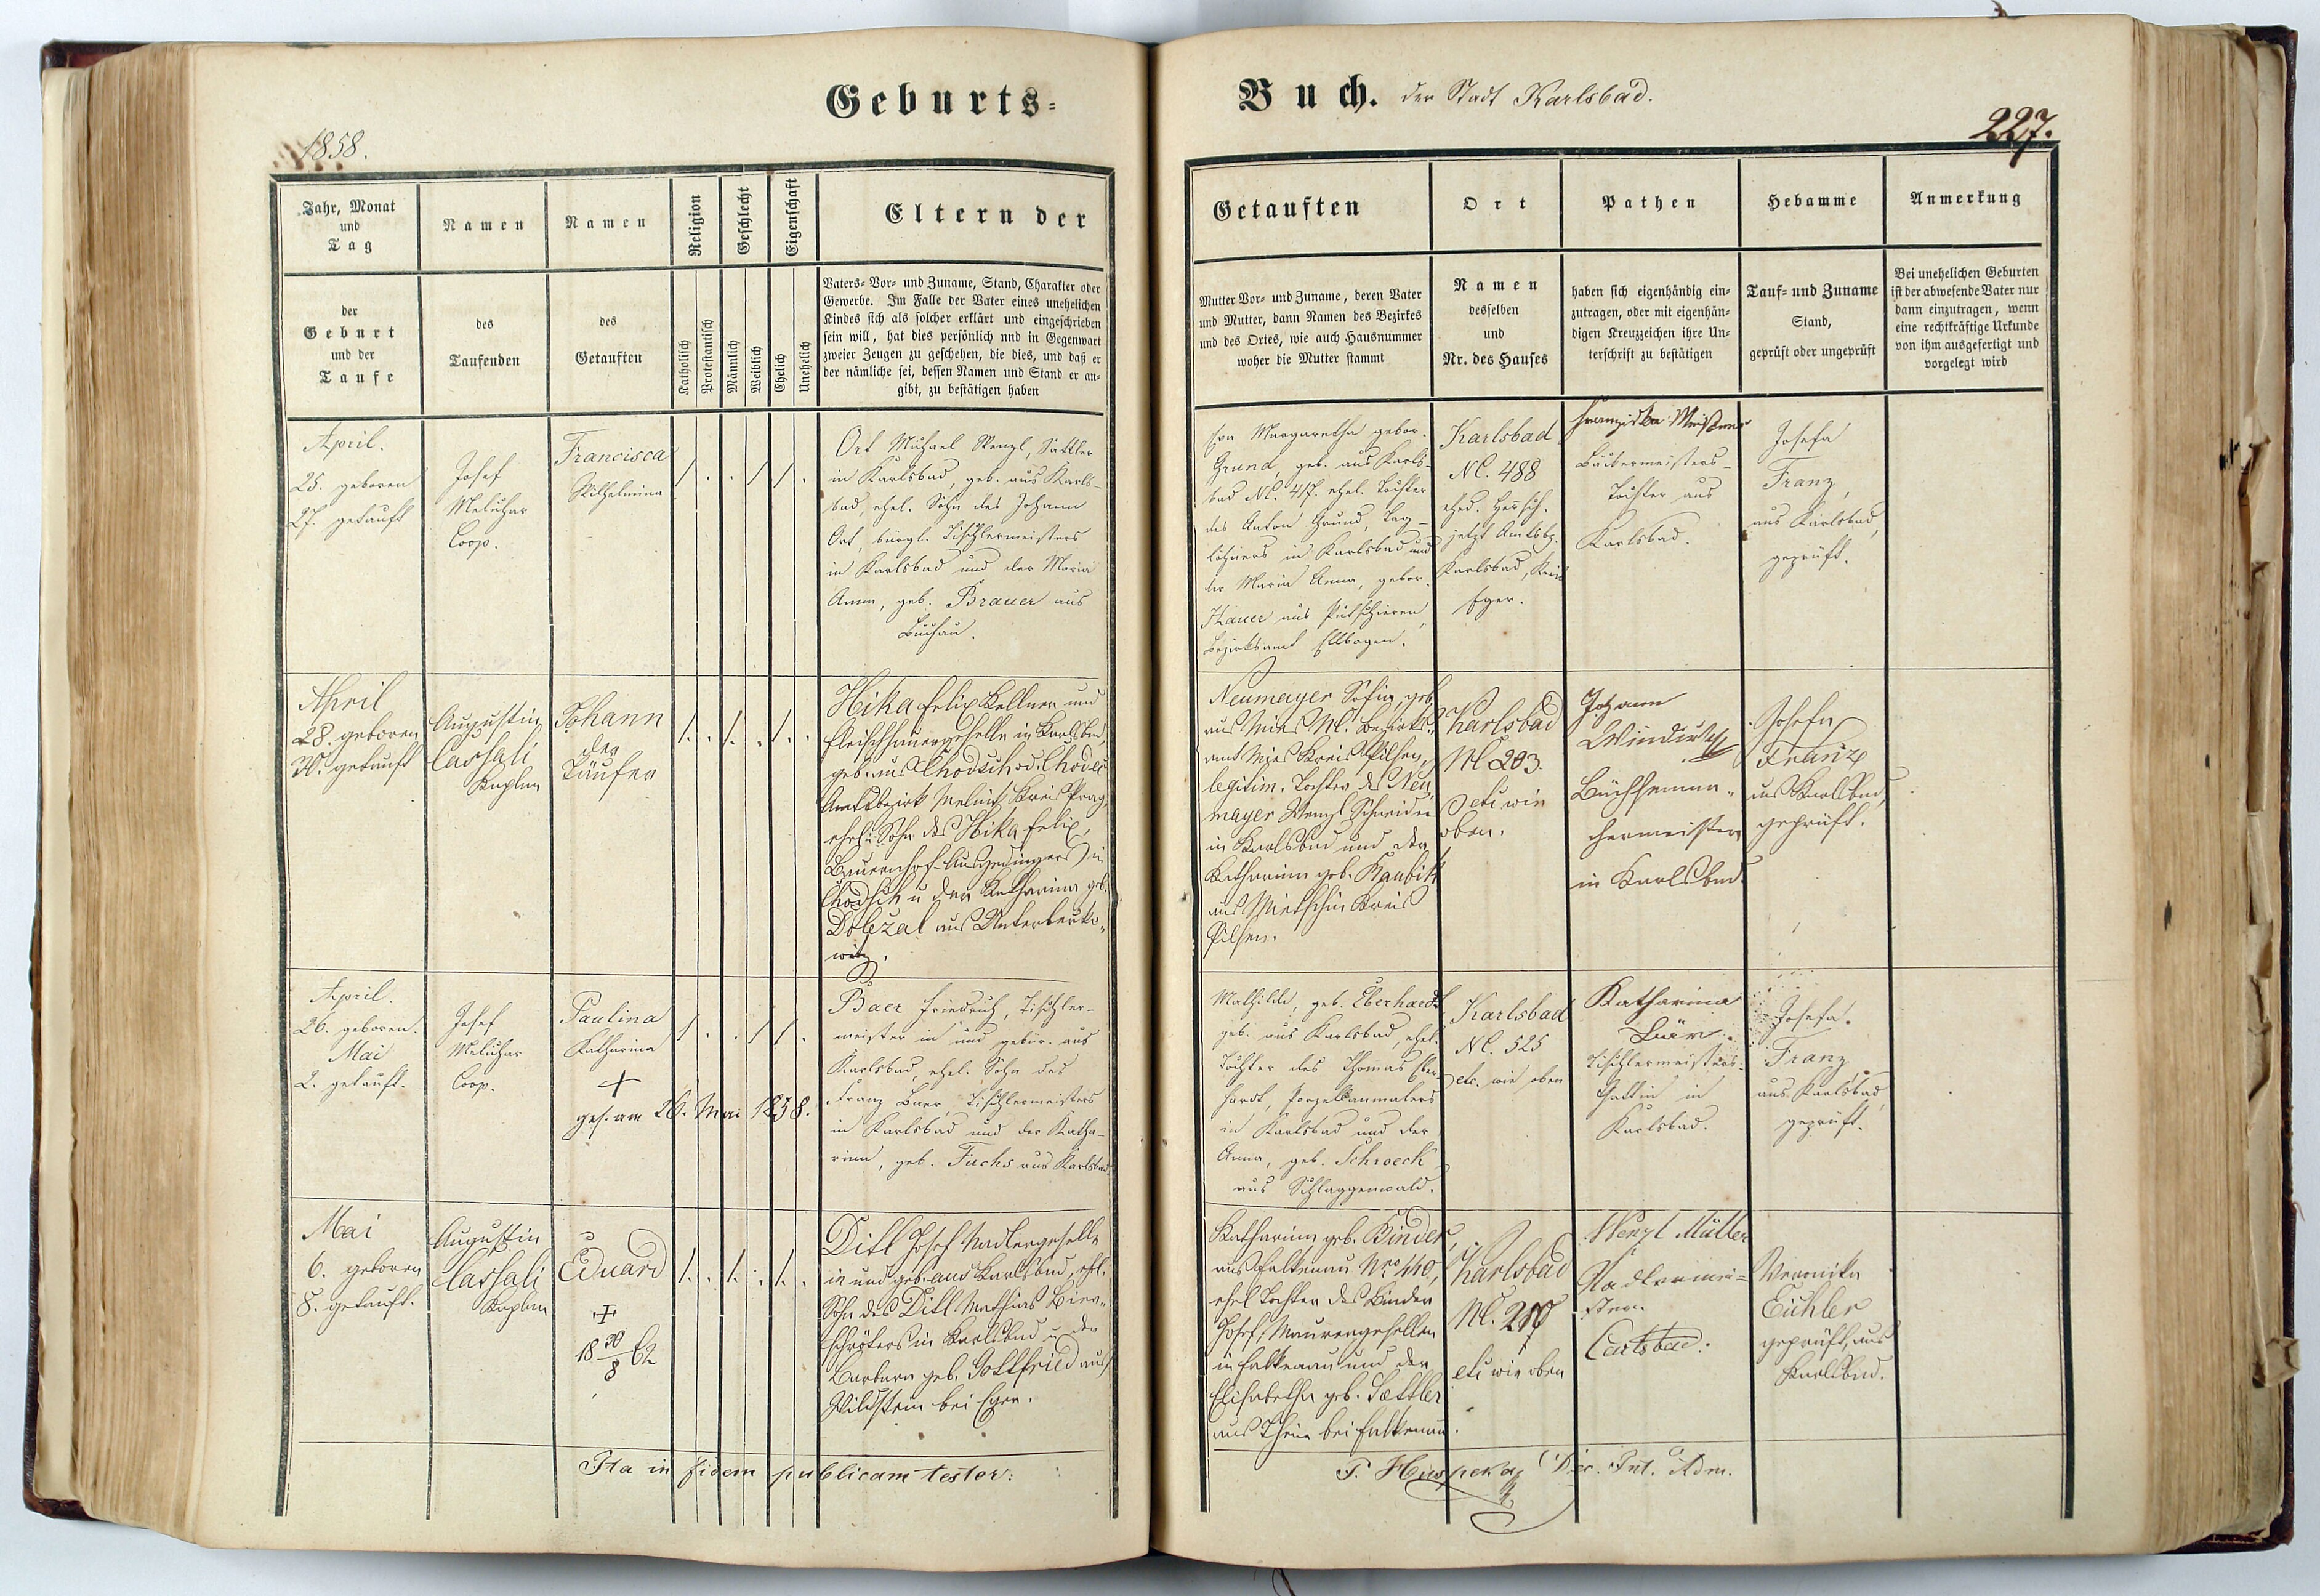 Geburts-
Buch. der Stadt Karlsbad.
1858.
227.
Jahr, Monat
und
Tag
der
Geburt
und der
Taufe
Namen
des
Taufenden
Namen
des
Getauften
Religion
Katholisch
Protestantisch
Geschlecht
Männlich
Weiblich
Eigenschaft
Ehelich
Unehelich
Eltern der
Vaters- Vor- und Zuname, Stand, Charakter oder
Gewerbe. Im Falle der Vater eines unehelichen
Kindes sich als solcher erklärt und eingeschrieben
sein will, hat dies persönlich und in Gegenwart
zweier Zeugen zu geschehen, die dies, und daß er
der nämliche sei, dessen Namen und Stand er an-
gibt, zu bestätigen haben
Getauften
Mutter Vor- und Zuname, deren Vater
und Mutter, dann Namen des Bezirkes
und des Ortes, wie auch Hausnummer
woher die Mutter stammt
Ort
Namen
desselben
und
Nr. des Hauses
Pathen
haben sich eigenhändig ein-
zutragen, oder mit eigenhän-
digen Kreuzzeichen ihre Un-
terschrift zu bestätigen
Hebamme
Tauf- und Zuname
Stand,
geprüft oder ungeprüft
Anmerkung
Bei unehelichen Geburten
ist der abwesende Vater nur
dann einzutragen, wenn
eine rechtkräftige Urkunde
von ihm ausgefertigt und
vorgelegt wird
April.
25. geboren
27. getauft
Josef
Meluzar
Coop.
Francisca
Wilhelmina
Ort Michael Wenzl, Sattler
in Karlsbad, geb. aus Karls-
bad, ehel. Sohn des Johann
Ort, bürgl. Tischlermeisters
in Karlsbad und der Maria
Anna, geb. Brauer aus
Buchau.
Margaretha gebor.
Grund, geb. aus Karls-
bad NC. 417. ehel. Tochter
des Anton Grund, Tag-
löhners in Karlsbad und
der Maria Anna, gebor.
aus Putschirn,
Bezirksamt Ellbogen.
Karlsbad
NC. 488
jetzt Amtsbz.
Karlsbad, Kreis
Eger.
Franziska
Tochter aus
Karlsbad.
Josefa
Franz,
aus Karlsbad,
geprüft.
April
28. geboren
30. getauft
Augustin
Cassali
Kaplan
Johann
der
Täufer
Hika Felix Kellner und
Fleischhauergeselle in Karlsbad,
geb. aus
Amtsbezirk Melnik Kreis Prag,
ehel. Sohn des Hika Felix,
in
u der Katharina geb.
Dolezal aus Unterberko-
witz.
Neumayer Sofia, geb.
aus Mies NC. Bezirks-
amt Mies Kreis Pilsen,
legitim. Tochter des Neu-
mayer Wenzl Schneider
in Karlsbad und der
Katharina geb. Kaubik
aus Kreis
Pilsen.
Karlsbad
NC 203.
etc wie
oben.
Johann
Windisch
Büchsenma-
chermeister
in Karlsbad.
Josefa
Franz
aus Karlsbad,
geprüft.
April.
26. geboren.
Mai
2. getauft.
Josef
Meluzar
Coop.
Paulina
Katharina
+
ges. am 26. Mai 1858.
Baer Friedrich, Tischler-
meister in und gebür. aus
Karlsbad, ehel. Sohn des
Franz Baer, Tischlermeisters
in Karlsbad und der Katha-
rina, geb. Fuchs aus Karlsbad
Mathilde, geb. Eberhardt
geb. aus Karlsbad, ehel.
Tochter des Thomas Eber-
hardt, Porzellanmalers
in Karlsbad und der
Anna, geb. Schroeck
aus Schlaggenwald.
Karlsbad
NC. 525
etc. wie oben
Katharina
Bär.
Tischlermeisters-
Gattin in
Karlsbad.
Josefa.
Franz
aus Karlsbad
geprüft.
Mai
6. geboren
8. getauft.
Augustin
Cassali
Kaplan
Eduard
+
18 30/8 62
Ditl Josef Nadlergeselle
in und geb. aus Karlsbad, ehl.
Sohn des Ditl Mathias Bier-
schröters in Karlsbad u. der
Barbara geb. Gottfried aus
Wildstein bei Eger.
Katharina geb. Binder,
aus Falkenau Nro 140,
ehel Tochter des Binder
Josef, Maurergesellen
in Falkenau und der
Elisabetha geb. Sattler
aus Thein bei Falkenau.
Karlsbad
NC.
etc wie oben
Wenzl Müller
Nadlermei-
ster.
Carlsbad.
Veronika
Eichler
geprüft, aus
Karlsbad.
Ita in fidem publicam testor:
Int. Adm.